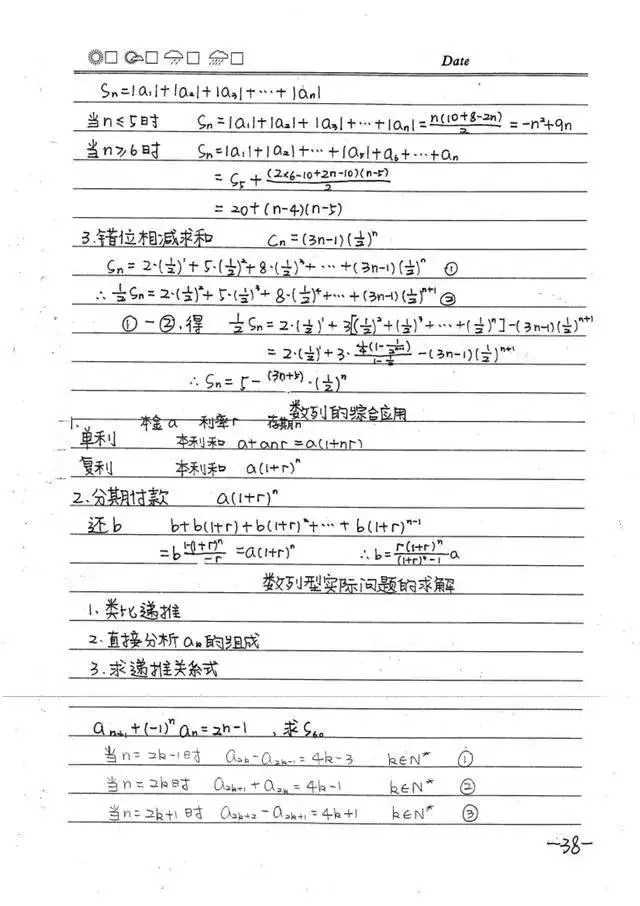 Date
Sn=|a₁|+|a₂|+|a₃|+…+|an|
当n≤5时 Sn=|a₁|+|a₂|+|a₃|+…+|an|=n(10+8-2n)/2=-n²+9n
当n≥6时 Sn=|a₁|+|a₂|+…+|a₅|+a₆+…+an
=S₅+(2×6-10+2n-10)(n-5)/2
=20+(n-4)(n-5)
3.错位相减求和 Cn=(3n-1)(1/2)ⁿ
Sn=2·(1/2)¹+5·(1/2)²+8·(1/2)³+…+(3n-1)(1/2)ⁿ ①
∴1/2Sn=2·(1/2)²+5·(1/2)³+8·(1/2)⁴+…+(3n-1)(1/2)ⁿ⁺¹ ②
①-②,得 1/2Sn=2·(1/2)¹+3[(1/2)²+(1/2)³+…+(1/2)ⁿ]-(3n-1)(1/2)ⁿ⁺¹
=2·(1/2)¹+3·1/4(1-1/2ⁿ⁻¹)/(1-1/2)-(3n-1)(1/2)ⁿ⁺¹
∴Sn=5-(3n+5)·(1/2)ⁿ
数列的综合应用
1. 本金a 利率r 存期n
单利 本利和 a+anr=a(1+nr)
复利 本利和 a(1+r)ⁿ
2.分期付款 a(1+r)ⁿ
还b b+b(1+r)+b(1+r)²+…+b(1+r)ⁿ⁻¹
=b(1-(1+r)ⁿ)/(-r)=a(1+r)ⁿ ∴b=r(1+r)ⁿ/((1+r)ⁿ-1)a
数列型实际问题的求解
1.类比递推
2.直接分析an的组成
3.求递推关系式
an+1+(-1)ⁿan=2n-1,求S₆₀
当n=2k-1时 a2k-a2k-1=4k-3 k∈N* ①
当n=2k时 a2k+1+a2k=4k-1 k∈N* ②
当n=2k+1时 a2k+2-a2k+1=4k+1 k∈N* ③
-38-